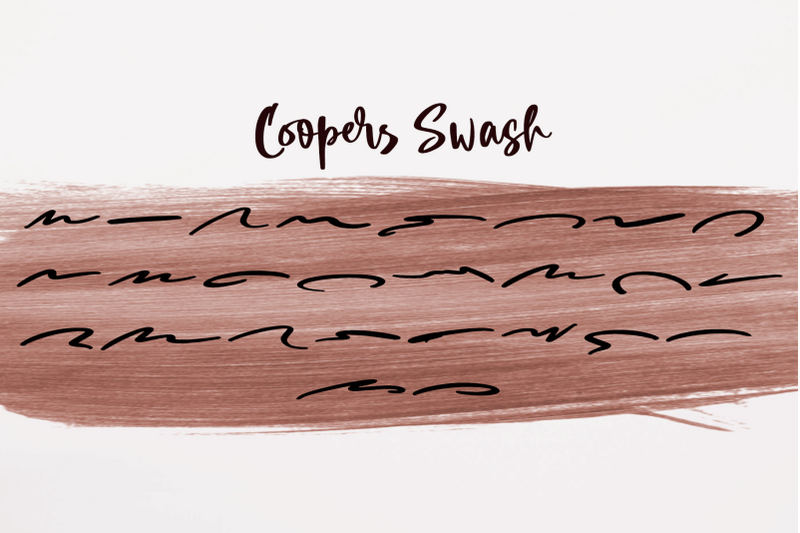 Coopers Swash